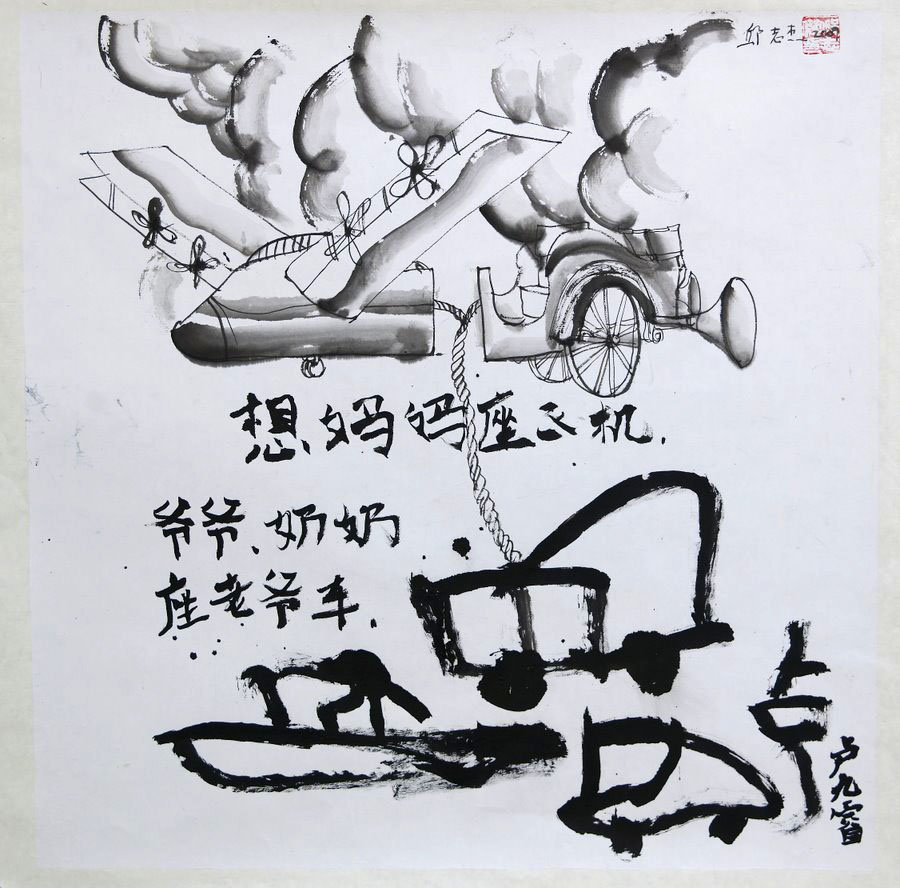 邱志杰
想妈妈座飞机.
爷爷、奶奶
座老爷车.
卢九